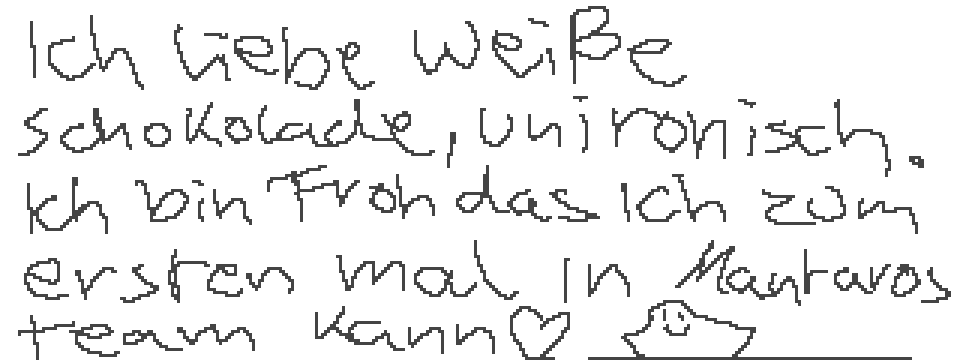 Ich liebe weiße
schokolade, unironisch.
Ich bin Froh das ich zum
ersten mal in Mantaros
team kann♡